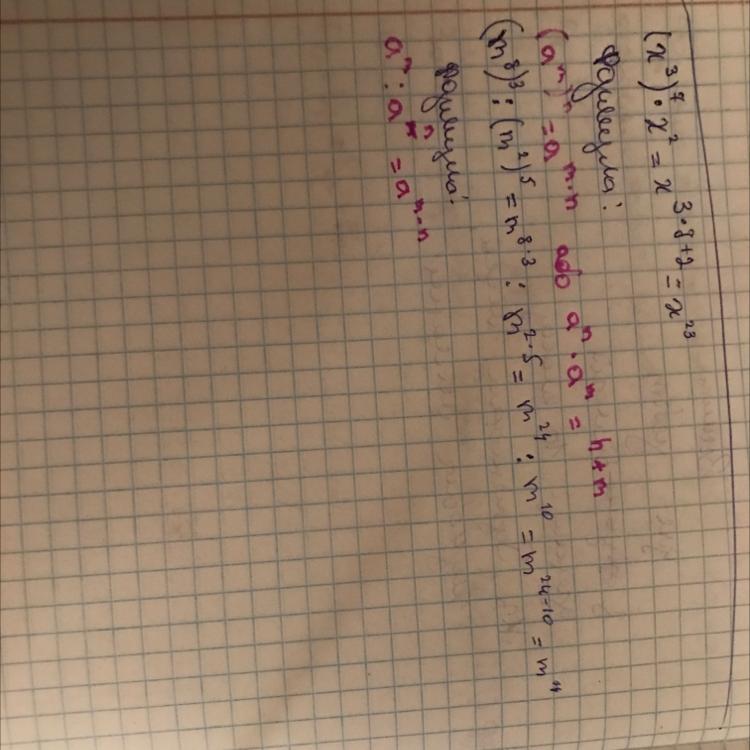 (x³)⁷ · x² = x³·⁸⁺² = x²³
Формула:
(aᵐ)ⁿ = aᵐ·ⁿ або aⁿ · aᵐ = n+m
(m⁸)³ : (m²)⁵ = m⁸·³ : m²·⁵ = m²⁴ : m¹⁰ = m²⁴⁻¹⁰ = m¹⁴
Формула:
aᵐ : aⁿ = aᵐ⁻ⁿ